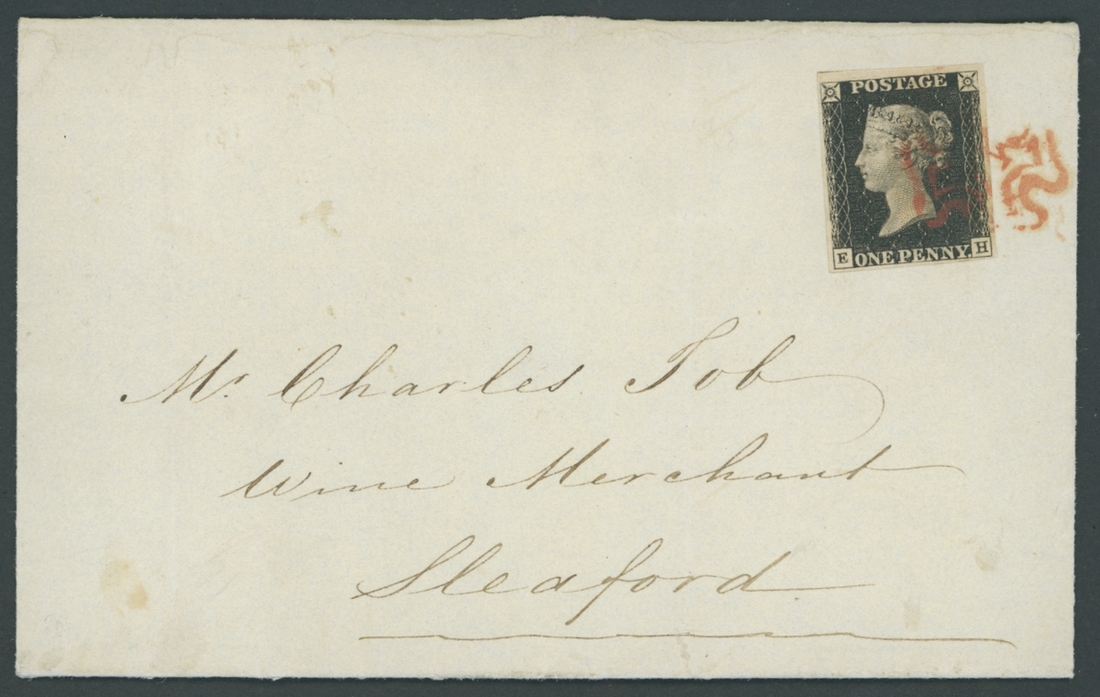 POSTAGE
E ONE PENNY. H
Mr. Charles Job
Wine Merchant
Sleaford